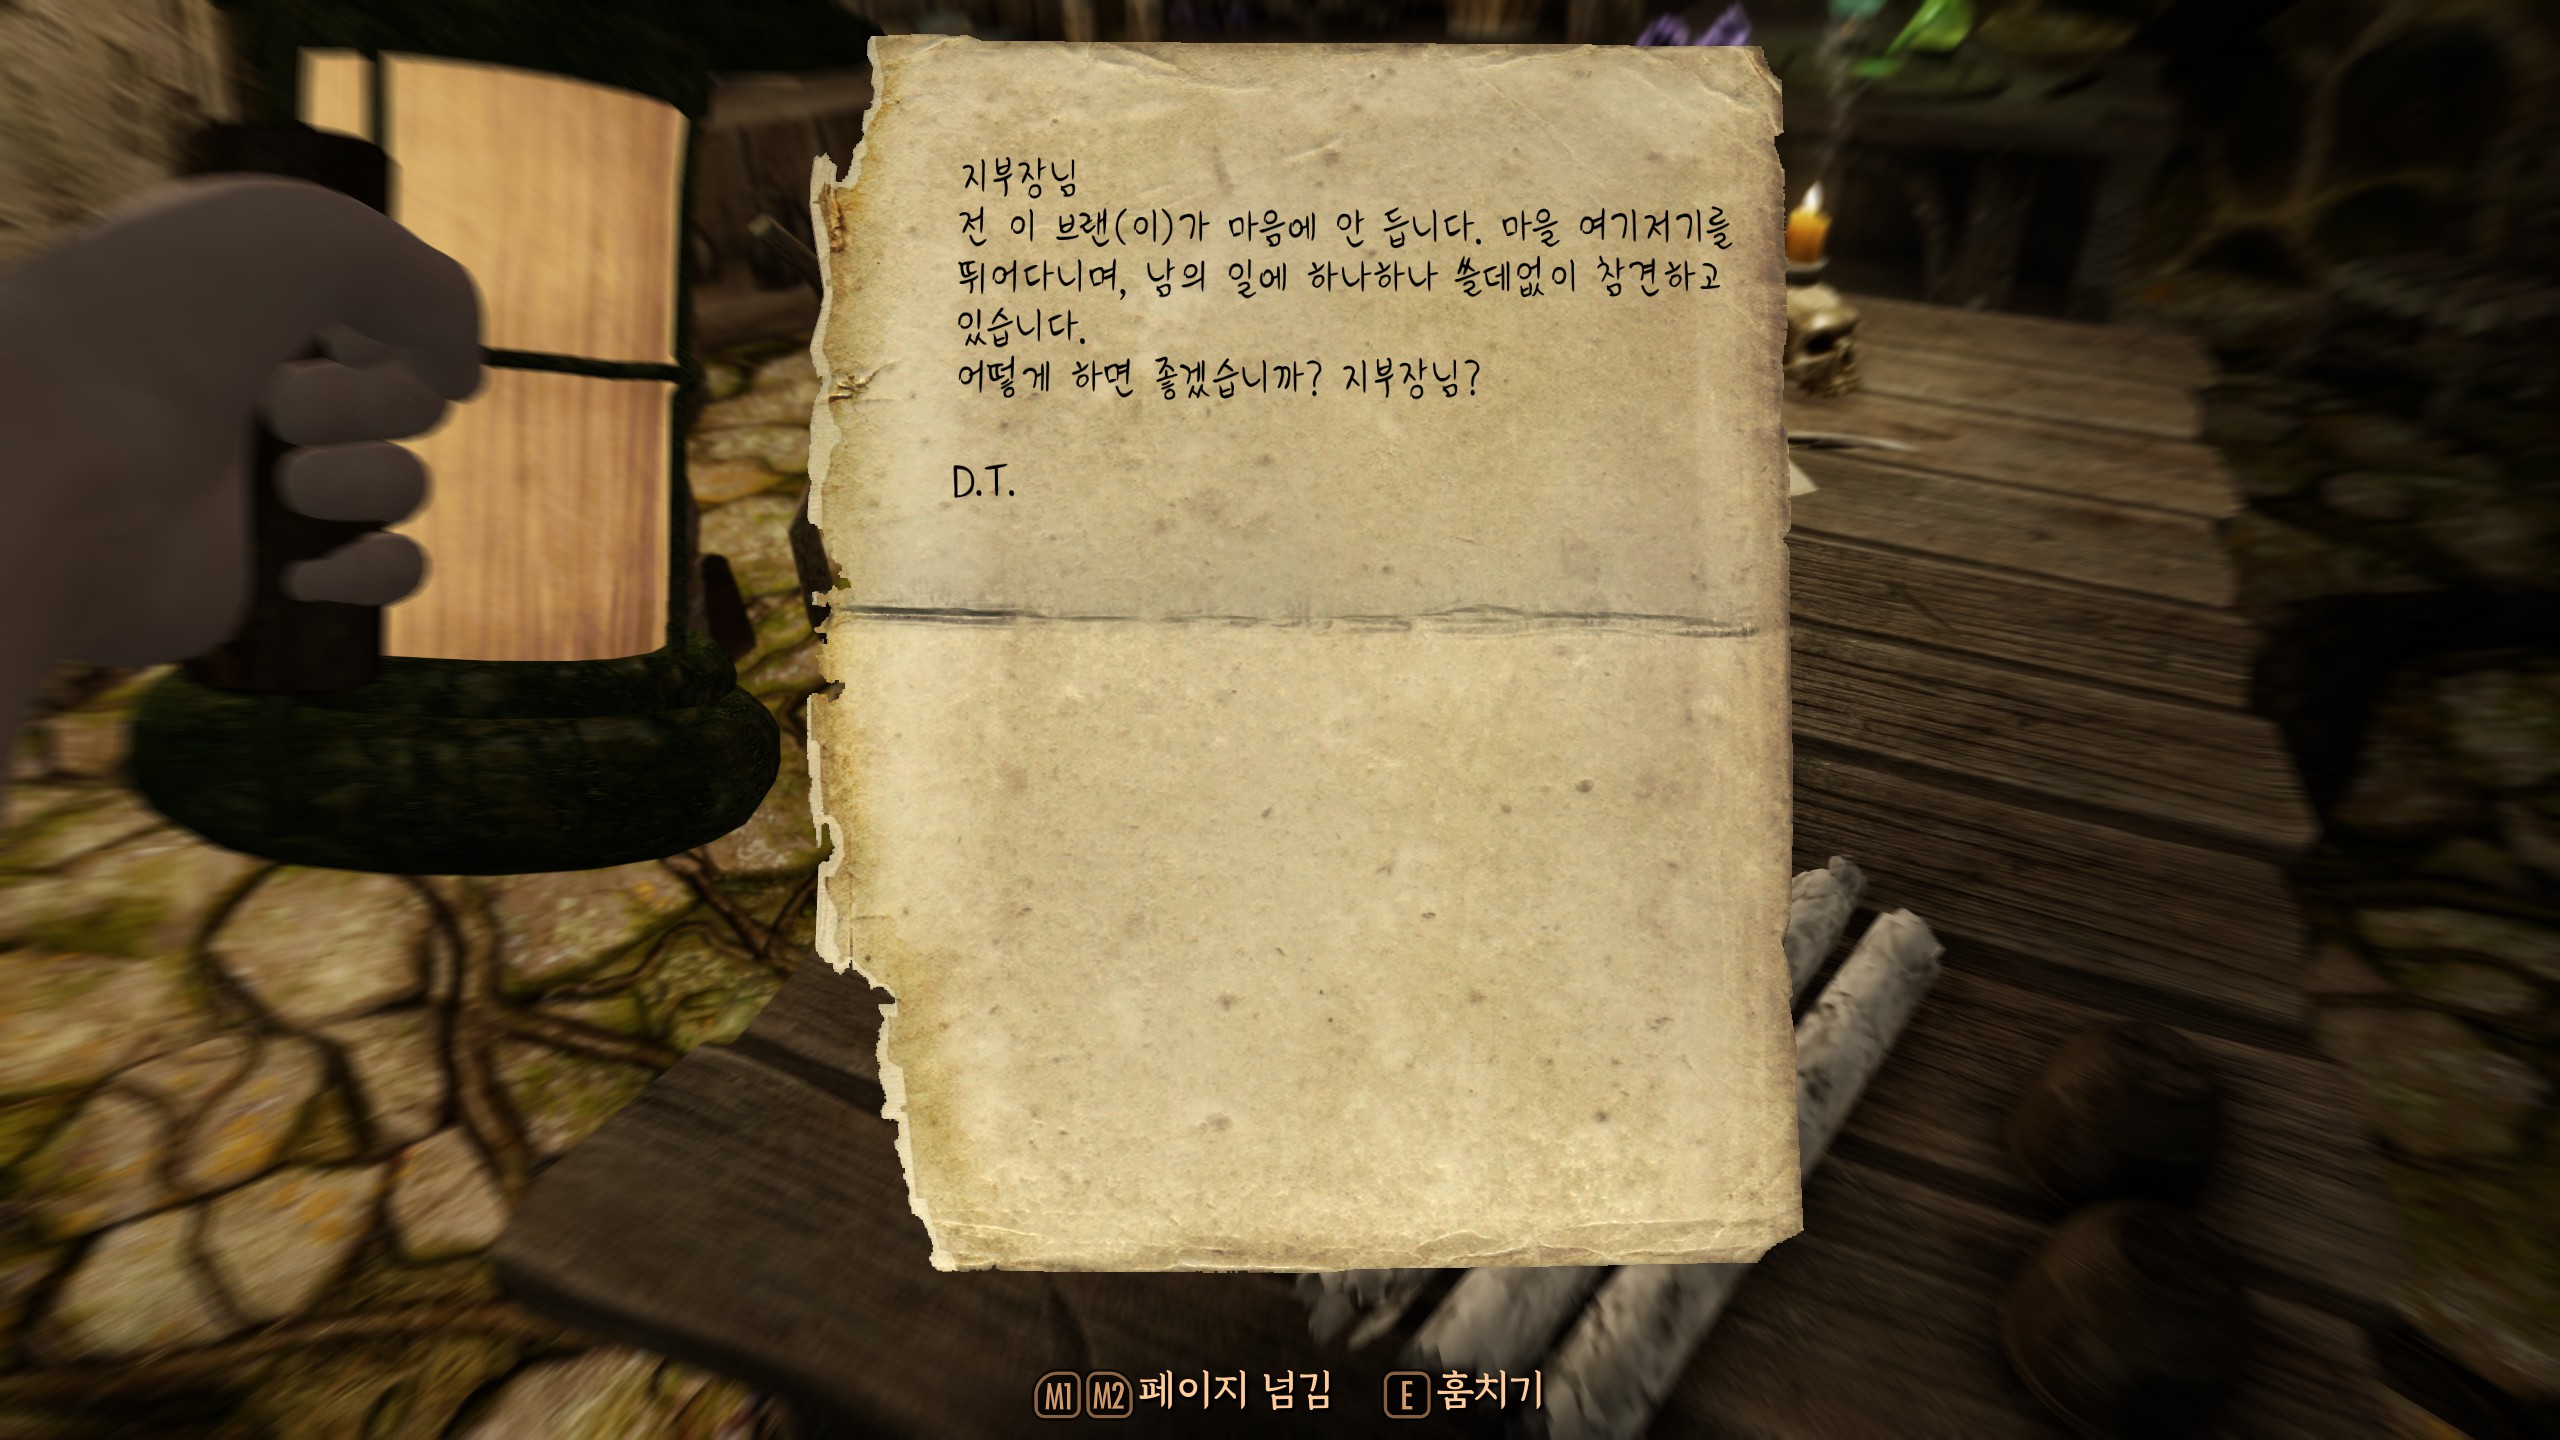 지부장님
전 이 브랜(이)가 마음에 안 듭니다. 마을 여기저기를
뛰어다니며, 남의 일에 하나하나 쓸데없이 참견하고
있습니다.
어떻게 하면 좋겠습니까? 지부장님?
D.T.
M1 M2 페이지 넘김 E 훔치기